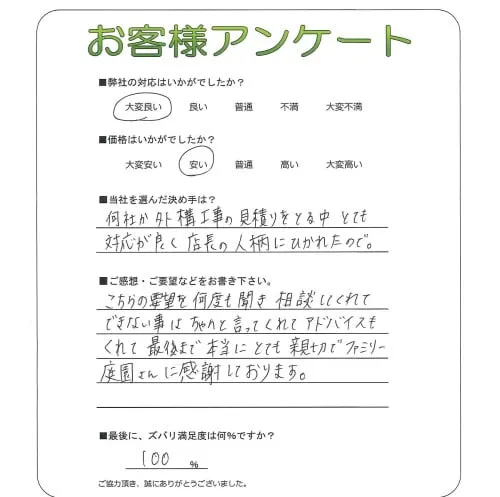 お客様アンケート
■弊社の対応はいかがでしたか？
大変良い 良い 普通 不満 大変不満
■価格はいかがでしたか？
大変安い 安い 普通 高い 大変高い
■当社を選んだ決め手は？
何社か外構工事の見積りをとる中 とても
対応が良く 店長の人柄にひかれたので。
■ご感想・ご要望などをお書き下さい。
こちらの要望を何度も聞き 相談してくれて
できない事は ちゃんと言ってくれて アドバイスも
くれて 最後まで 本当に とても 親切で ファミリー
庭園さんに感謝しております。
■最後に、ズバリ満足度は何％ですか？
100 ％
ご協力頂き、誠にありがとうございました。